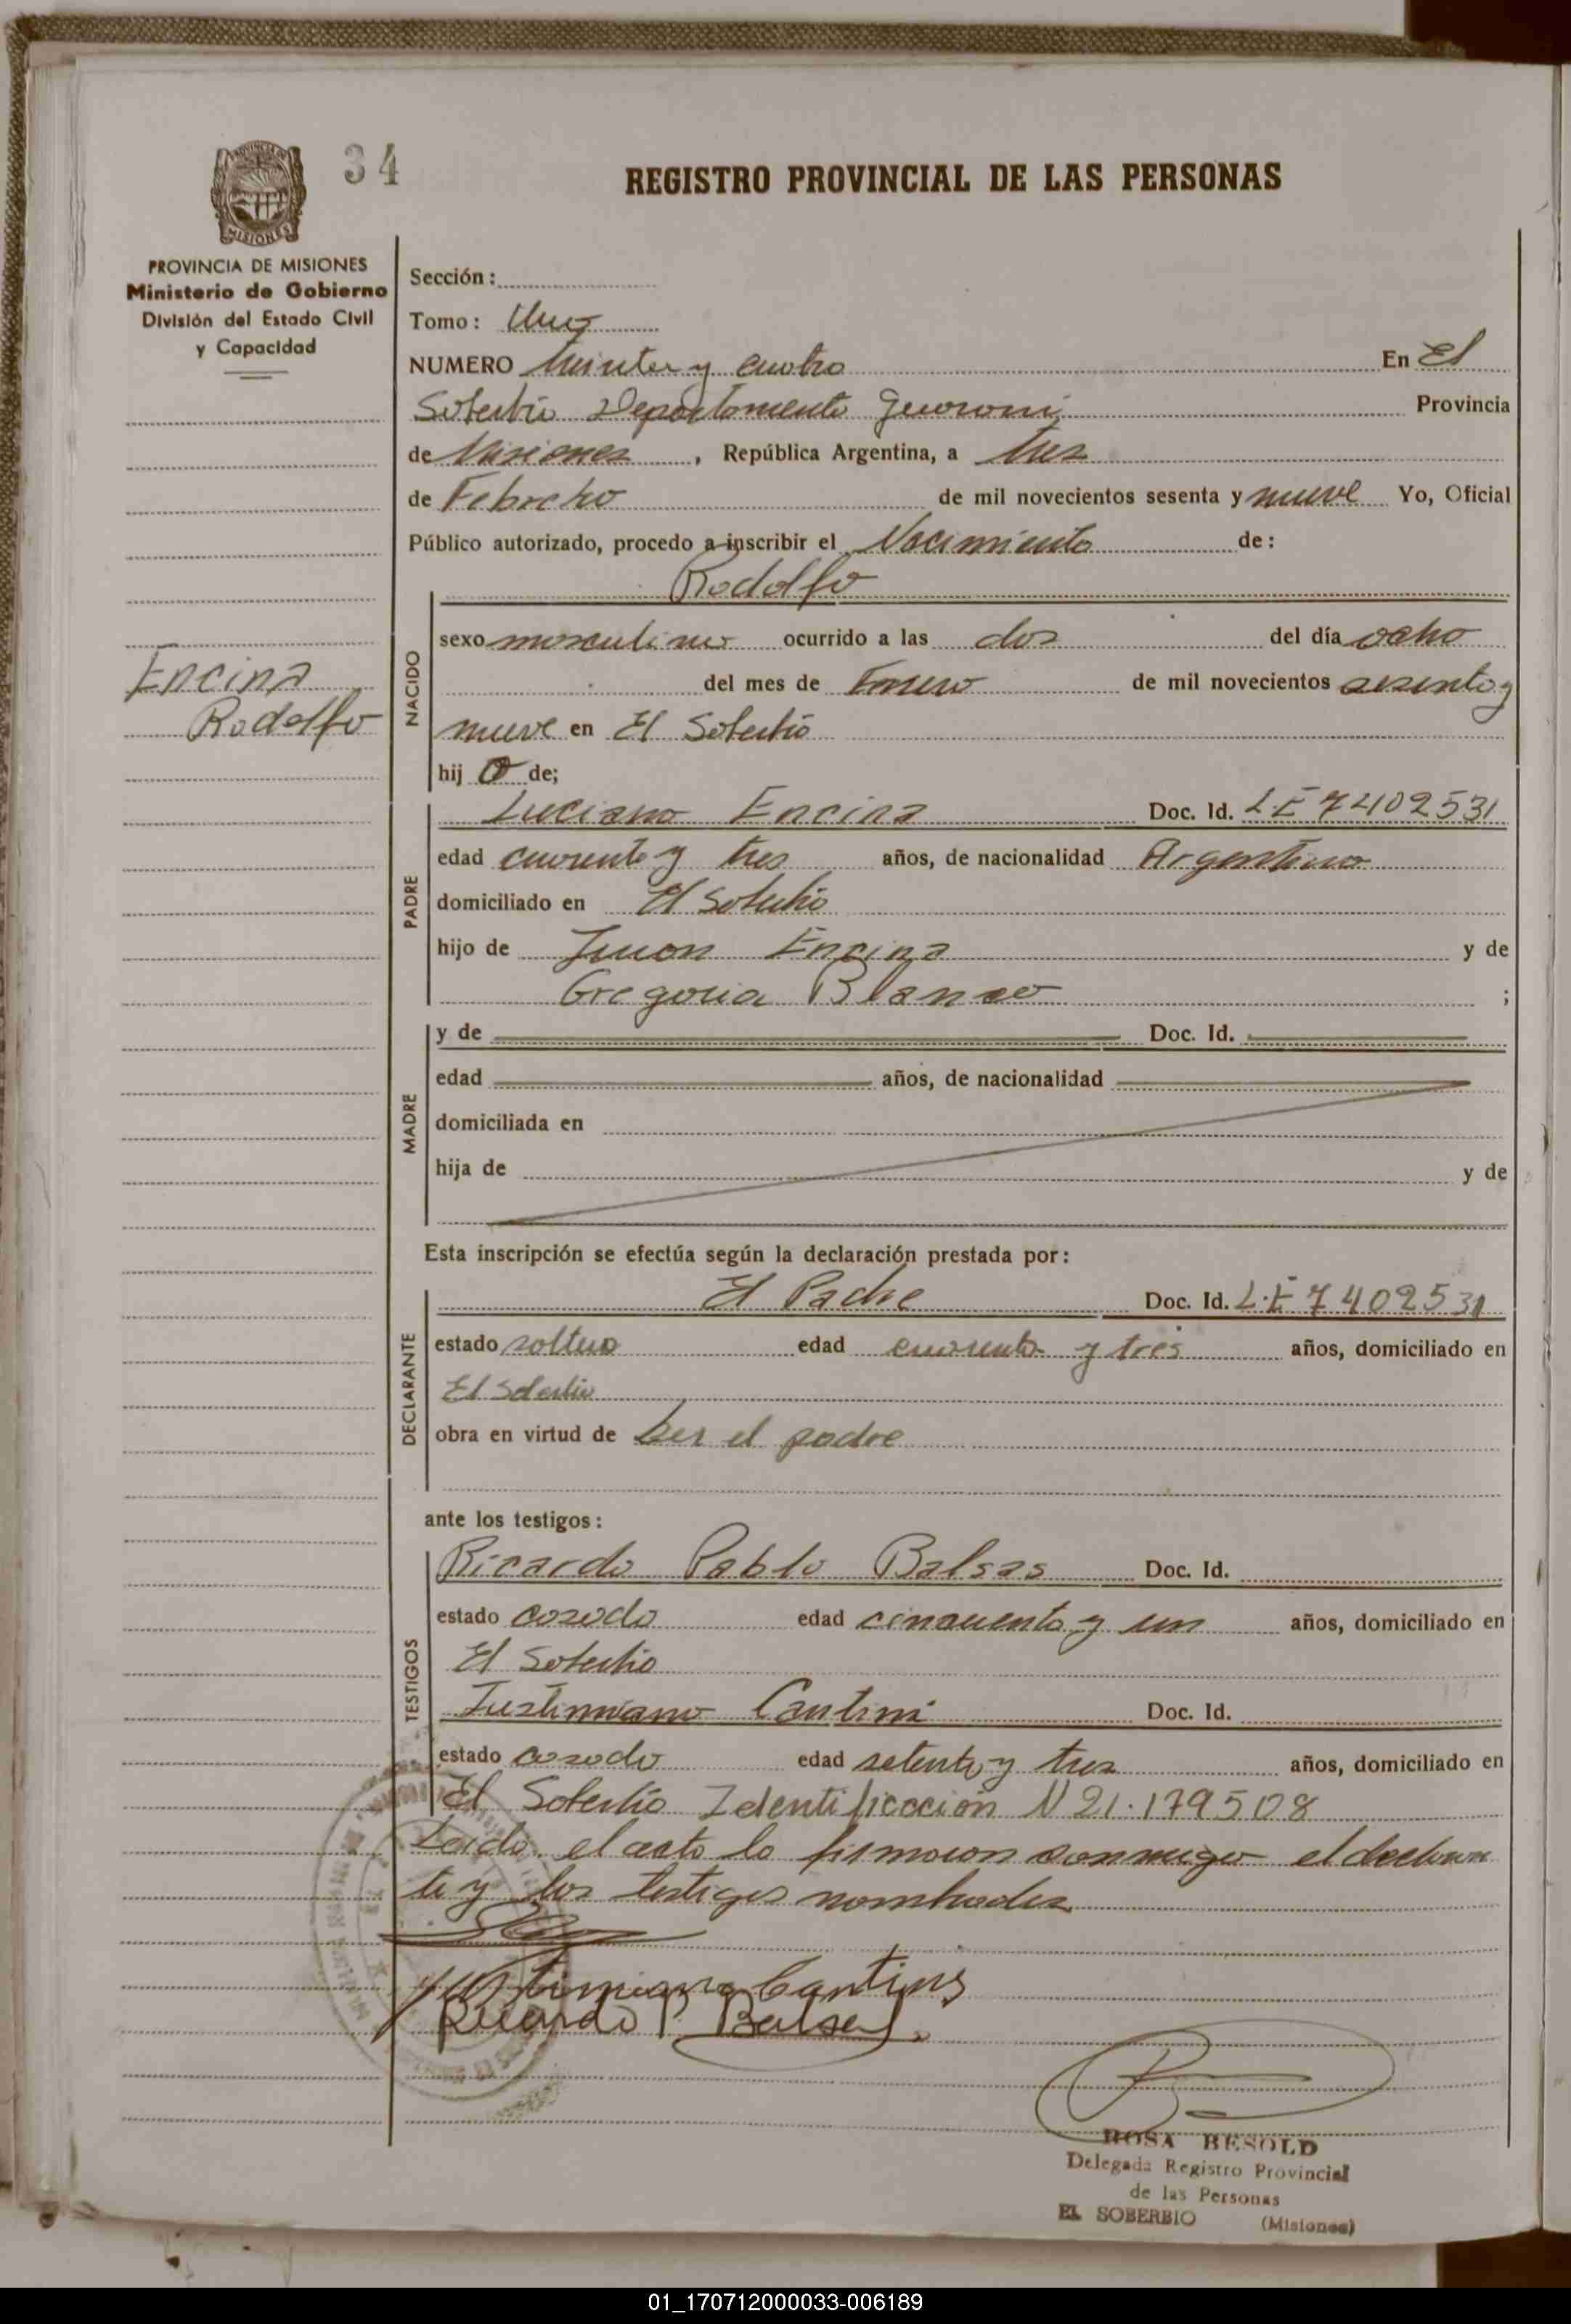 34
REGISTRO PROVINCIAL DE LAS PERSONAS
PROVINCIA DE MISIONES
Ministerio de Gobierno
División del Estado Civil
y Capacidad
Sección:
Tomo: Uno
NUMERO treinta y cuatro En El
Soberbio Departamento Guarani Provincia
de Misiones, República Argentina, a tres
de Febrero de mil novecientos sesenta y nueve Yo, Oficial
Público autorizado, procedo a inscribir el Nacimiento de:
Rodolfo
Encina
Rodolfo
NACIDO
sexo masculino ocurrido a las dos del día ocho
del mes de Enero de mil novecientos sesenta y
nueve en El Soberbio
hij o de;
PADRE
Luciano Encina Doc. Id. L.E 7402531
edad cuarenta y tres años, de nacionalidad Argentino
domiciliado en El Soberbio
hijo de Juan Encina y de
Gregoria Blanco ;
MADRE
y de Doc. Id.
edad años, de nacionalidad
domiciliada en
hija de y de
Esta inscripción se efectúa según la declaración prestada por:
DECLARANTE
El Padre Doc. Id. L.E 7402531
estado soltero edad cuarenta y tres años, domiciliado en
El Soberbio
obra en virtud de ser el padre
ante los testigos:
TESTIGOS
Ricardo Pablo Balsas Doc. Id.
estado casado edad cincuenta y un años, domiciliado en
El Soberbio
Justinniano Cantini Doc. Id.
estado casado edad setenta y tres años, domiciliado en
El Soberbio Identificación N 21.179508
Leida el acta la firmaron conmigo el declaran
te y los testigos nombrados
Justimiano Cantins
Ricardo P. Balsas
ROSA BESOLD
Delegada Registro Provincial
de las Personas
EL SOBERBIO (Misiones)
01_170712000033-006189